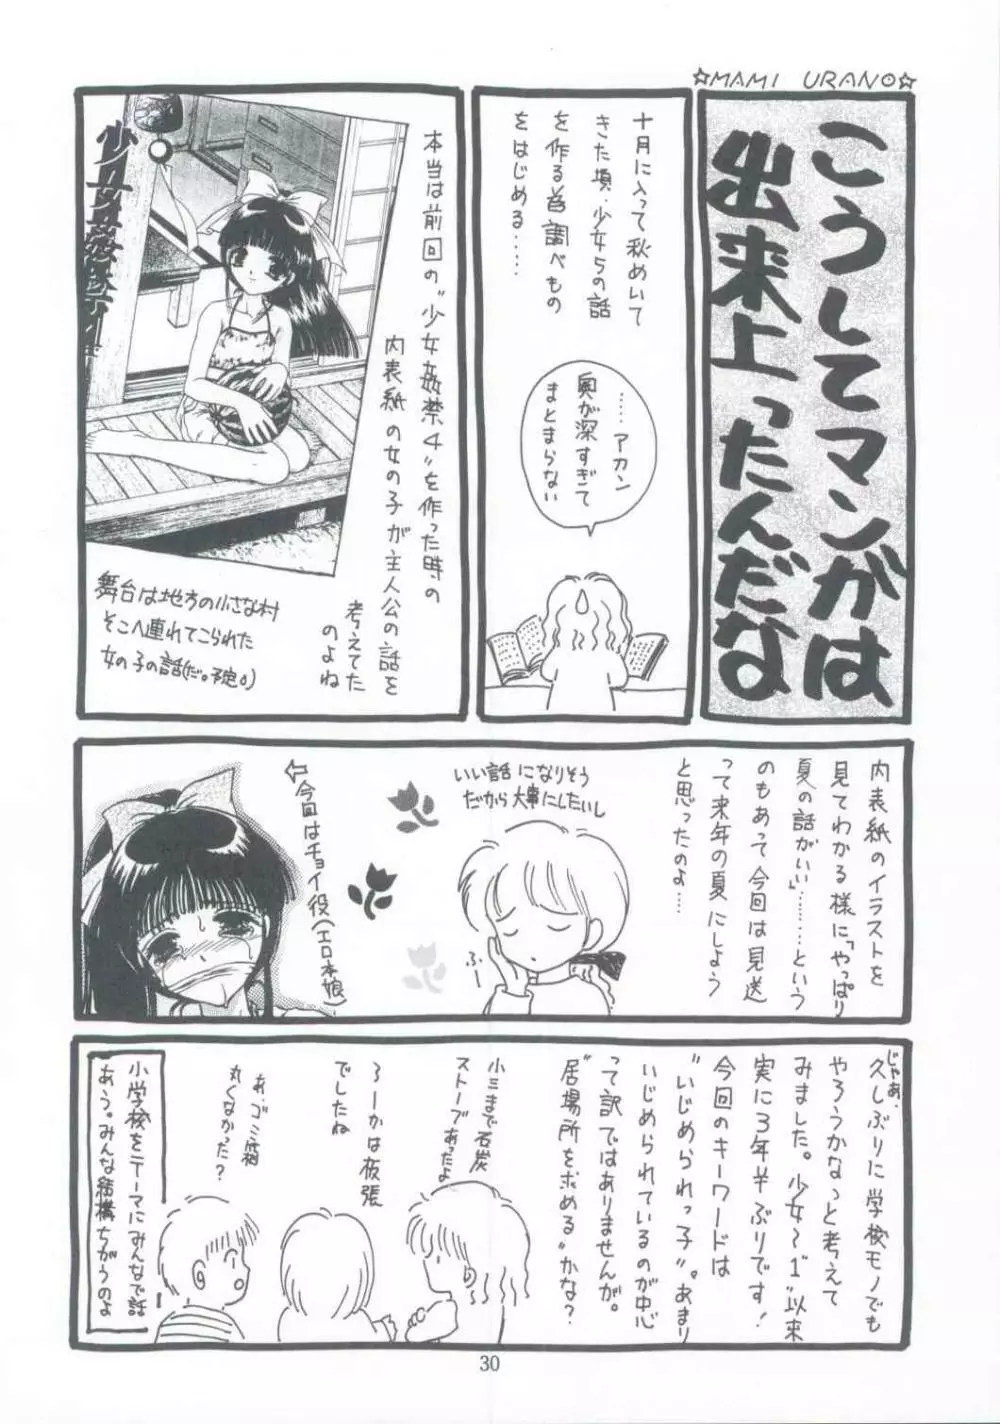 ☆MAMI URANO☆
こうしてマンガは
出来上ったんだな
十月に入って秋めいて
きた頃、少女らの話
を作る為調べもの
をはじめる……
……アカン
奥が深すぎて
まとまらない
本当は前回の“少女姦禁4”を作った時の
内表紙の女の子が主人公の話を
考えてた
のよね
舞台は地方の小さな村
そこへ連れてこられた
女の子の話(だ。予定。)
内表紙のイラストを
見てわかる様に「やっぱり
夏の話がいい」………という
のもあって今回は見送
って来年の夏にしよう
と思ったのよ……
いい話になりそう
だから大事にしたいし
ふー
←今回はチョイ役(エロ本娘)
じゃあ、
久しぶりに学校モノでも
やろうかなっと考えて
みました。少女〜“1”以来
実に3年半ぶりです!
今回のキーワードは
“いじめられっ子”。あまり
いじめられているのが中心
って訳ではありませんが。
“居場所を求める”かな?
小三まで石炭
ストーブあったよ
ろーかは板張
でしたね
あ、ゴミ箱
丸くなかった?
小学校をテーマにみんなで話
あう。みんな結構ちがうのよ
30